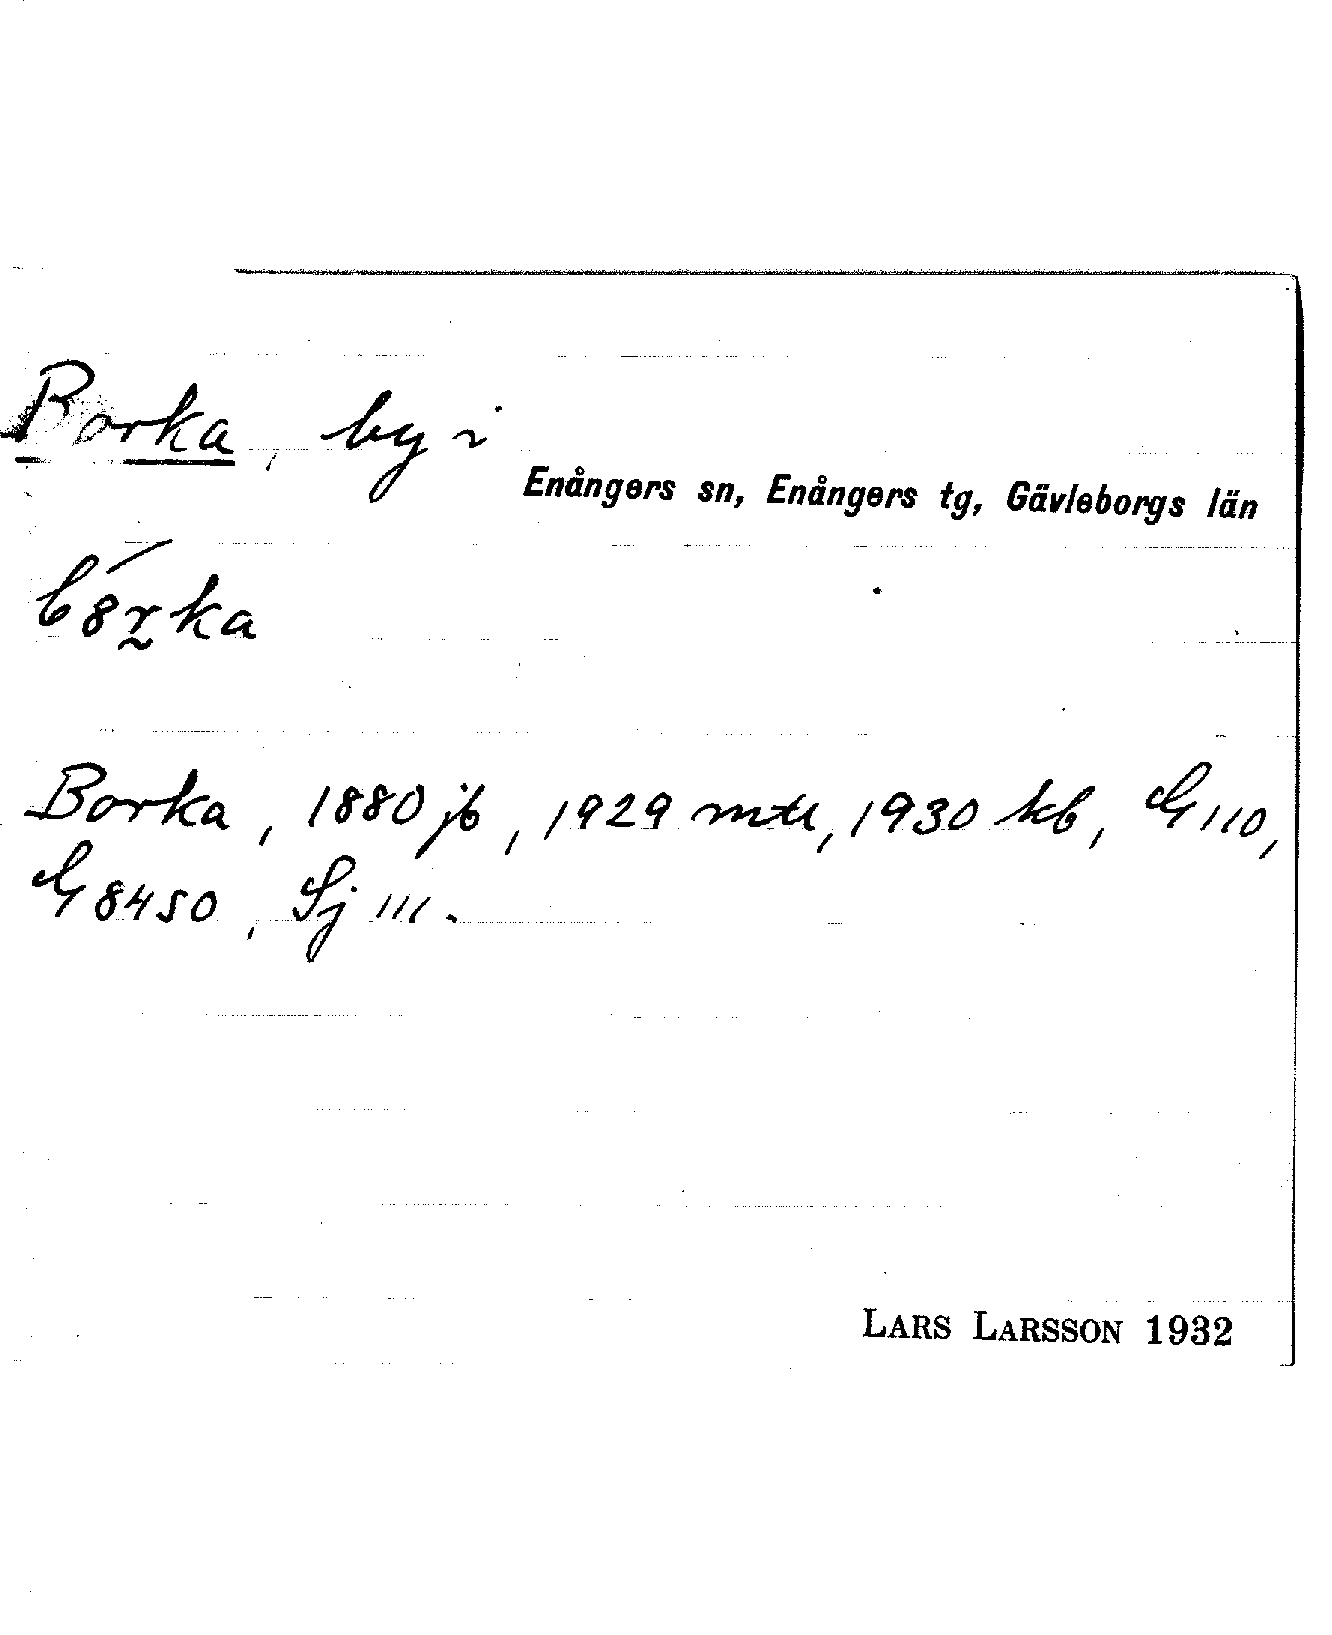 Borka, by i
Enångers sn, Enångers tg, Gävleborgs län
Borka, 1880 jb, 1929 mtl, 1930 kb, G 110,
G 8450, Sj III.
LARS LARSSON 1932